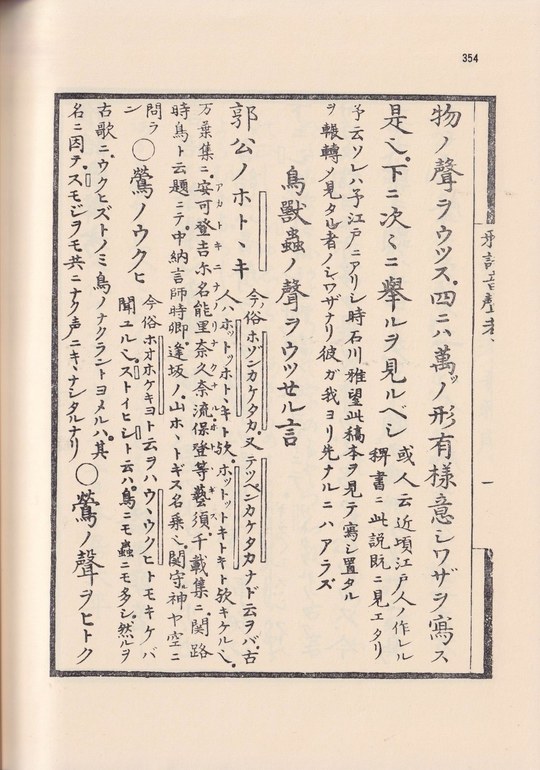 354
雅語音聲考
一
物ノ聲ヲウツス。四ニハ萬ッノ形有様意シワザヲ寫ス
是也。下ニ次々ニ舉ルヲ見ルベシ
或人云近頃江戸人ノ作レル
稗書ニ此説既ニ見エタリ
予云ソレハ予江戸ニアリシ時石川雅望此稿本ヲ見テ寫シ置タル
ヲ輾轉メ見タル者ノシワザナリ彼ガ我ヨリ先ナルニハアラズ
鳥獸蟲ノ聲ヲウツセル言
郭公ノホトヽキ
今ノ俗ホゾンカケタカ。又テツペンカケタカナド云ヲバ。古
人ハホットッホトヽキト欤。ホットットキトキト欤キケル也。
万葉集ニ。安可登吉尓名能里奈久奈流保登等藝須千載集ニ。関路
アカトキニナノリナクナルホトヽギス
時鳥ト云題ニテ。中納言師時卿。逢坂ノ。山ホヽトギス名乗也。関守。神ヤ空ニ
問ラン
〇鶯ノウクヒ
今俗ホオホケキヨト云ヲハウヽウクヒトモキケバ
聞ユル也。ストイヒシト云ハ。鳥ニモ蟲ニモ多シ。然ルヲ
古歌ニ。ウクヒズトノミ鳥ノナクラントヨメルハ。其
名ニ因テ。スモジヲモ共ニナク声ニキヽナシタルナリ
〇鶯ノ聲ヲヒトク